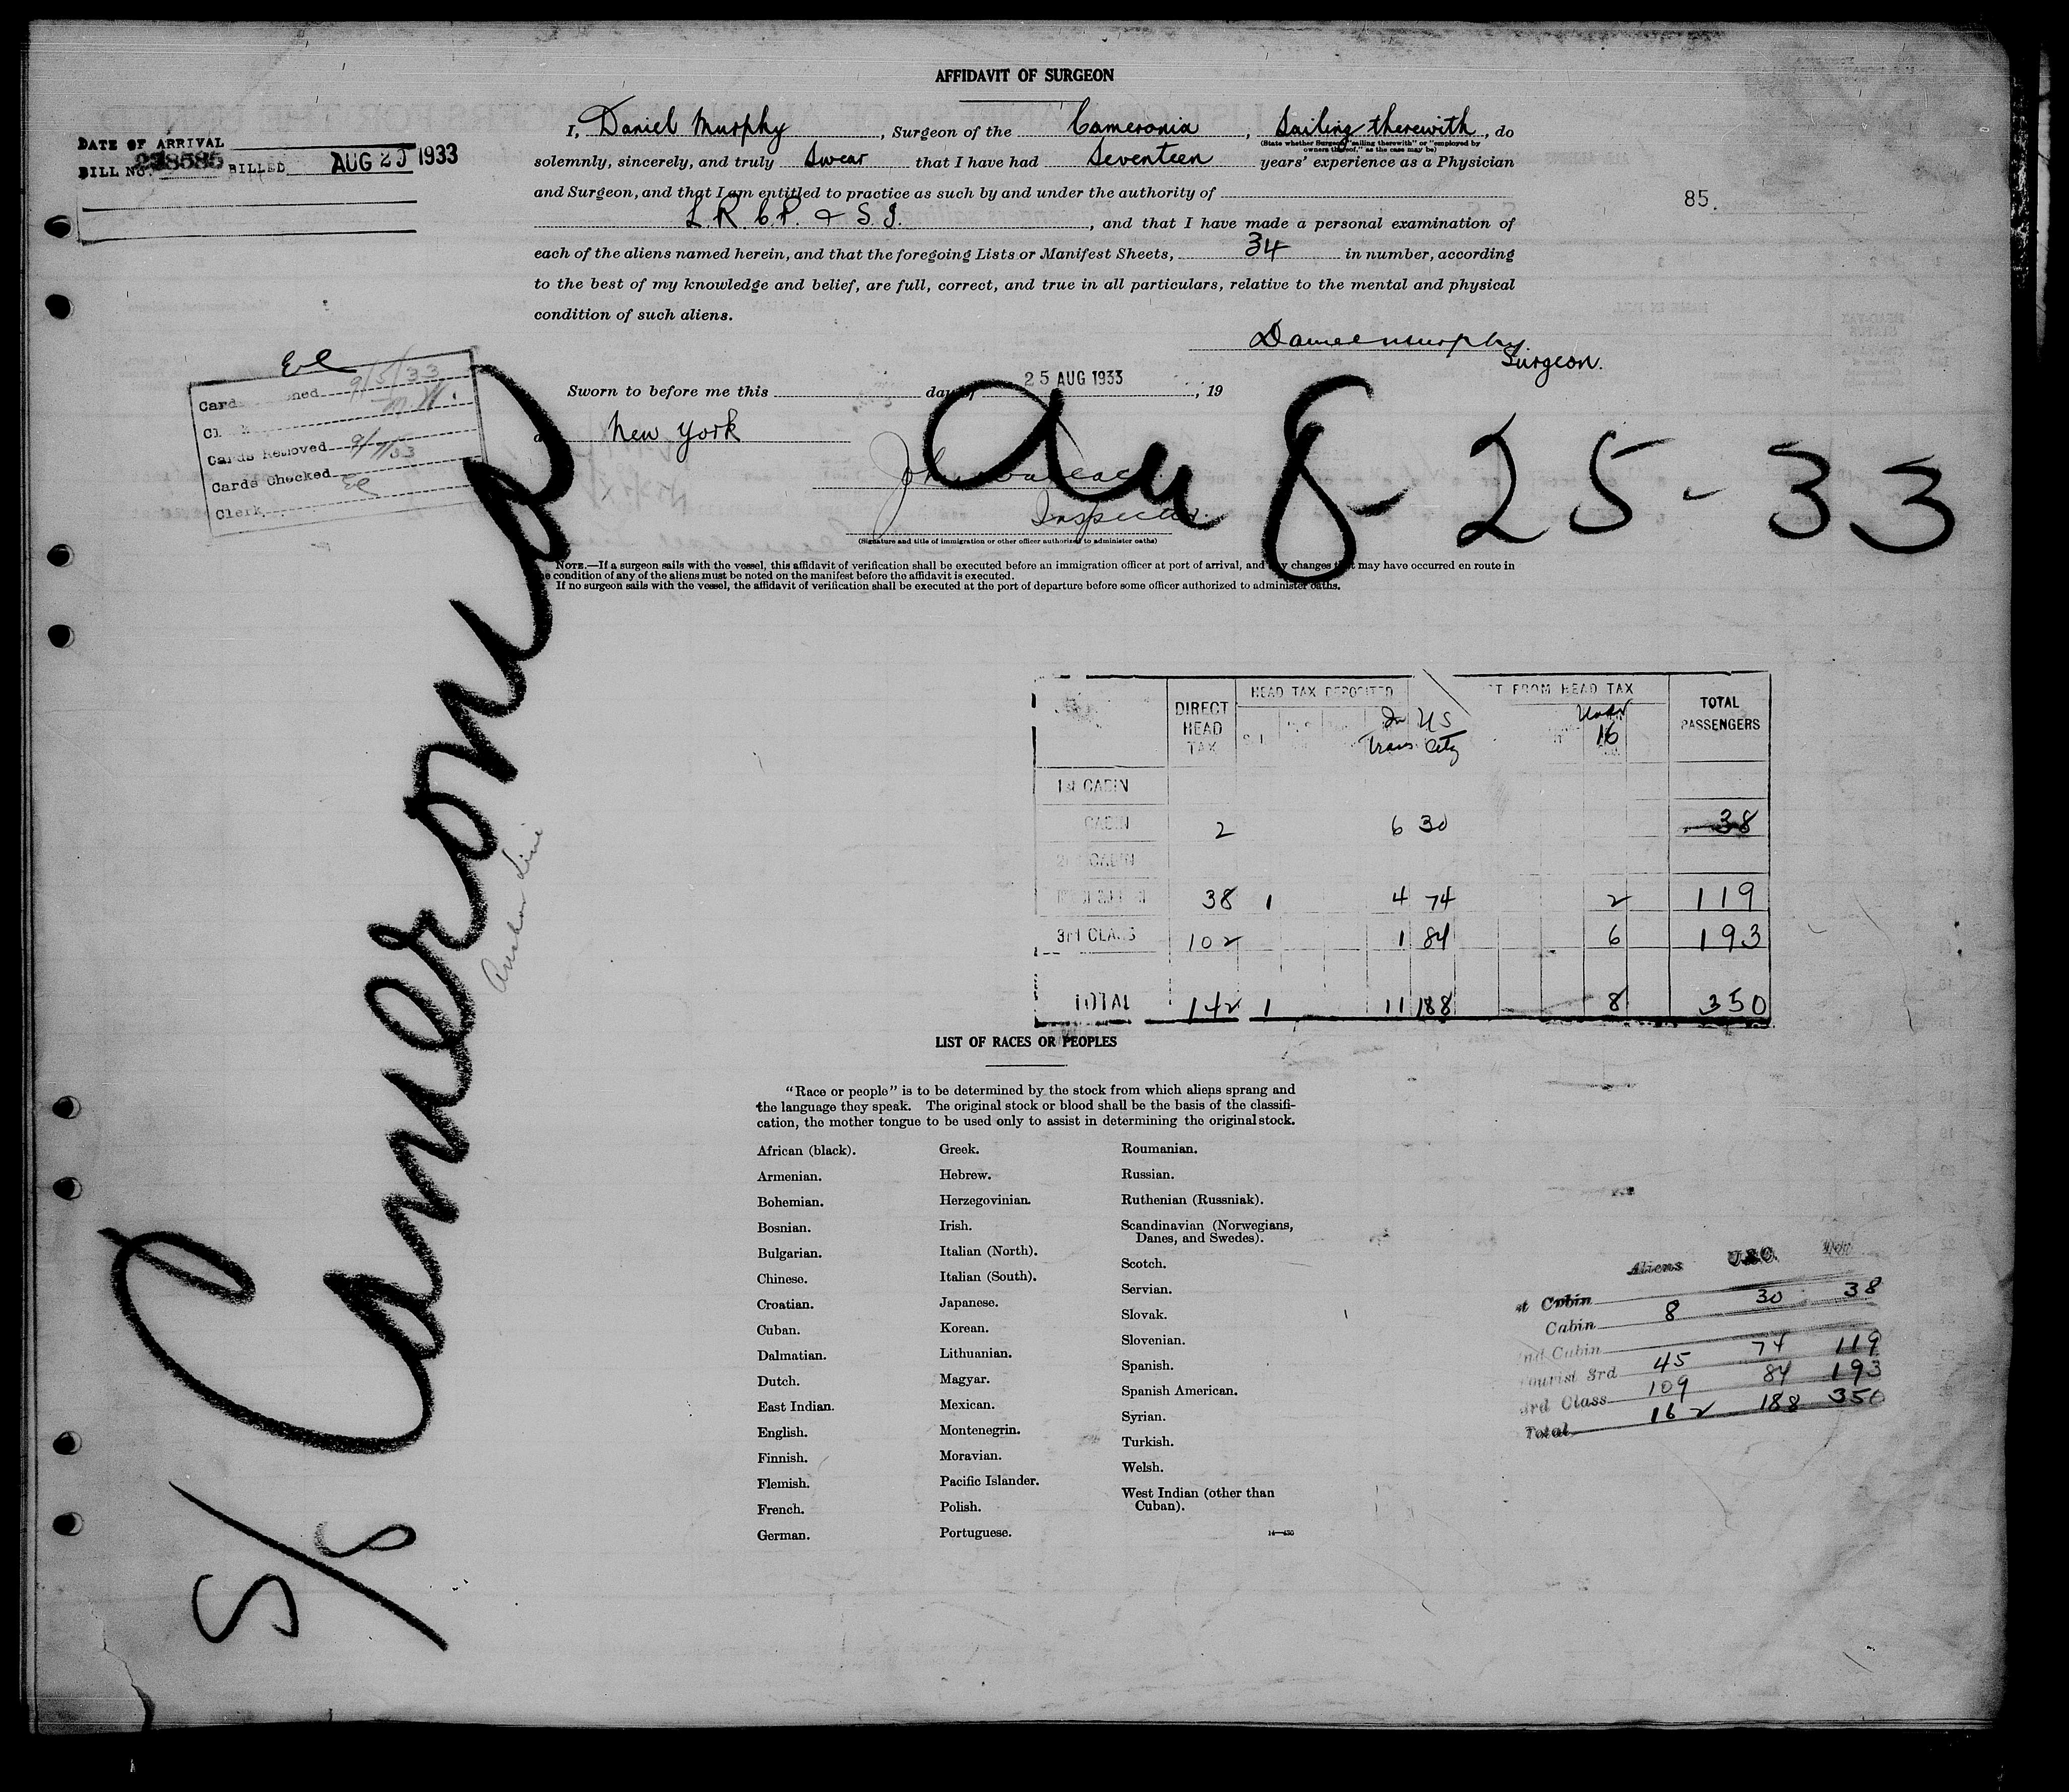 AFFIDAVIT OF SURGEON
DATE OF ARRIVAL
BILL No. BILLED AUG 25 1933
I, Daniel Murphy, Surgeon of the Cameronia, Sailing therewith, do
(State whether Surgeon "sailing therewith" or "employed by
owners thereof," as the case may be)
solemnly, sincerely, and truly Swear that I have had Seventeen years' experience as a Physician
and Surgeon, and that I am entitled to practice as such by and under the authority of
L.R.C.P. & S.I., and that I have made a personal examination of
85.
each of the aliens named herein, and that the foregoing Lists or Manifest Sheets, 34 in number, according
to the best of my knowledge and belief, are full, correct, and true in all particulars, relative to the mental and physical
condition of such aliens.
Daniel Murphy
Surgeon.
Cards
9/5/33
Cards Removed
Cards Checked
Clerk
Sworn to before me this day of 25 AUG 1933, 19
at New York
Inspector
(Signature and title of immigration or other officer authorized to administer oaths)
8-25-33
NOTE.—If a surgeon sails with the vessel, this affidavit of verification shall be executed before an immigration officer at port of arrival, and any changes that may have occurred en route in
the condition of any of the aliens must be noted on the manifest before the affidavit is executed.
If no surgeon sails with the vessel, the affidavit of verification shall be executed at the port of departure before some officer authorized to administer oaths.
S/S Cameronia
Anchor Line
DIRECT HEAD TAX HEAD TAX DEPOSITED FROM HEAD TAX TOTAL PASSENGERS
In Trans US City Under 16
1st CABIN
CABIN 2 6 30 38
2nd CABIN
38 1 4 74 2 119
3rd CLASS 102 1 84 6 193
TOTAL 142 1 11 188 8 350
LIST OF RACES OR PEOPLES
"Race or people" is to be determined by the stock from which aliens sprang and
the language they speak. The original stock or blood shall be the basis of the classifi-
cation, the mother tongue to be used only to assist in determining the original stock.
African (black).
Armenian.
Bohemian.
Bosnian.
Bulgarian.
Chinese.
Croatian.
Cuban.
Dalmatian.
Dutch.
East Indian.
English.
Finnish.
Flemish.
French.
German.
Greek.
Hebrew.
Herzegovinian.
Irish.
Italian (North).
Italian (South).
Japanese.
Korean.
Lithuanian.
Magyar.
Mexican.
Montenegrin.
Moravian.
Pacific Islander.
Polish.
Portuguese.
Roumanian.
Russian.
Ruthenian (Russniak).
Scandinavian (Norwegians,
Danes, and Swedes).
Scotch.
Servian.
Slovak.
Slovenian.
Spanish.
Spanish American.
Syrian.
Turkish.
Welsh.
West Indian (other than
Cuban).
Aliens U.S.C.
Cabin
Cabin 8 30 38
Cabin
Tourist 3rd 45 74 119
3rd Class 109 84 193
Total 162 188 350